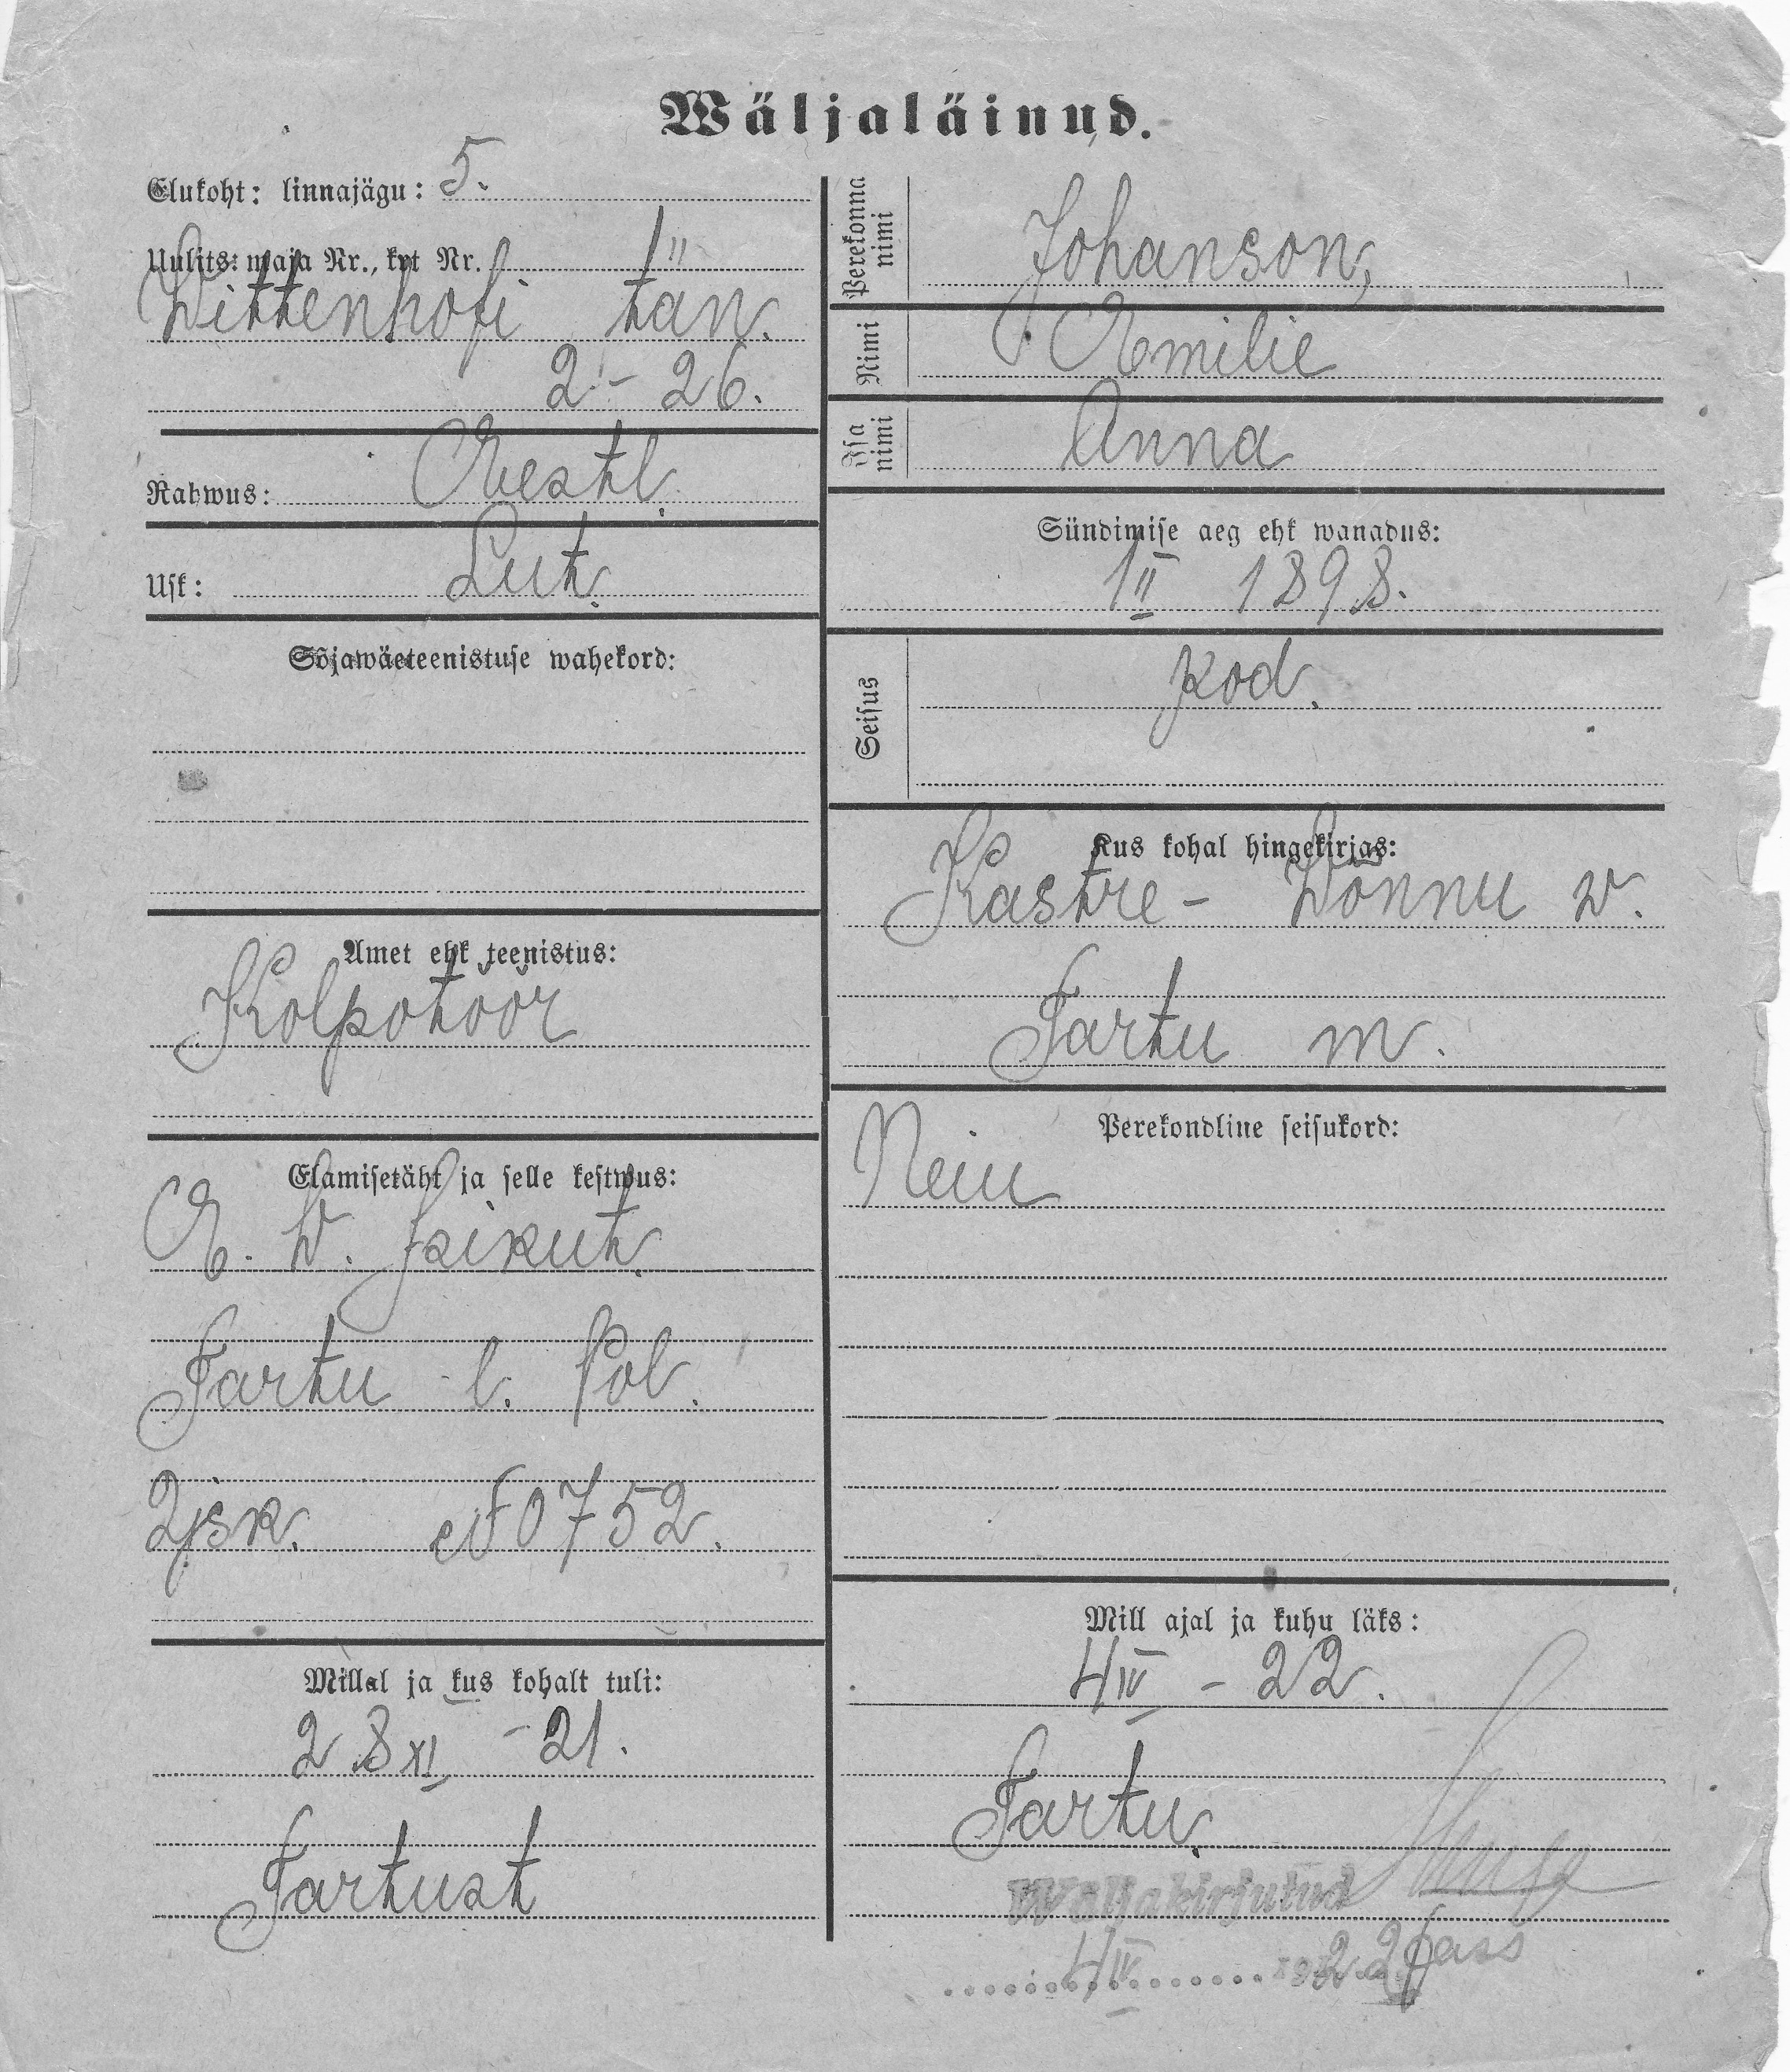 Wäljaläinud.
Elukoht: linnajägu: 5.
Uulits: maja Nr., krt Nr.
Wittenhofi tän.
2 - 26.
Rahwus: Eestl.
Usk: Lut.
Sõjawäeteenistuse wahekord:
Amet ehk teenistus:
Kolpotöör
Elamisetäht ja selle kestwus:
E. W. Isikut.
Tartu l. Pol.
2 jsk. № 0752.
Millal ja kus kohalt tuli:
28 XI - 21.
Tartust
Perekonna nimi
Johanson,
Nimi
Emilie
Isa nimi
Anna
Sündimise aeg ehk wanadus:
1 II 1898.
Seisus
kod.
Kus kohal hingekirjas:
Kastre - Wõnnu w.
Tartu m.
Perekondline seisukord:
Neiu
Mill ajal ja kuhu läks:
4 IV - 22.
Tartu.
Wäljakirjutud
4 IV 22